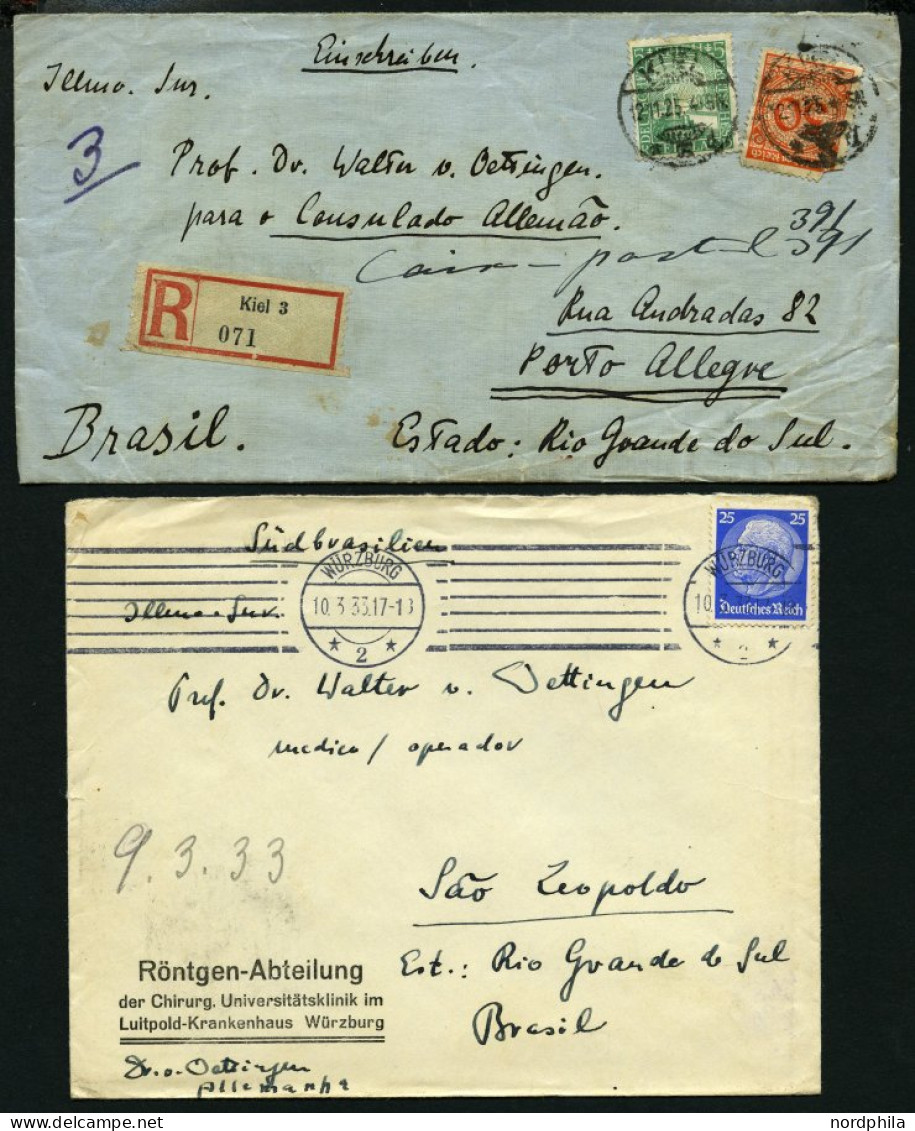 Einschreiben.
Illmo. Snr.
3
Prof. Dr. Walter v. Oettingen.
para o Consulado Allemão.
391
391
R
Kiel 3
071
Rua Andradas 82
Porto Allegre
Brasil.
Estado: Rio Grande do Sul.
KIEL
25
25
Deutsches Reich
Südbrasilien
WÜRZBURG
10.3.33.17-18
* 2 *
WÜRZBURG
Illmo. Snr.
Prof. Dr. Walter v. Oettingen
medico / operador
9.3.33
São Leopoldo
Est.: Rio Grande do Sul
Brasil
Röntgen-Abteilung
der Chirurg. Universitätsklinik im
Luitpold-Krankenhaus Würzburg
Dr. v. Oettingen
Allemanha
nordphila